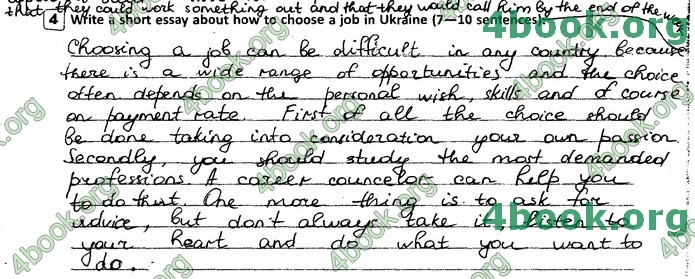 that they could work something out and that they would call him by the end of the
4 Write a short essay about how to choose a job in Ukraine (7—10 sentences).
Choosing a job can be difficult in any country because
there is a wide range of opportunities and the choice
often depends on the personal wish, skills and of course
on payment rate. First of all the choice should
be done taking into consideration your own passion.
Secondly, you should study the most demanded
professions. A career councelor can help you
to do that. One more thing is to ask for
advice, but don't always take it, listen to
your heart and do what you want to
do.
4book.org
4book.org